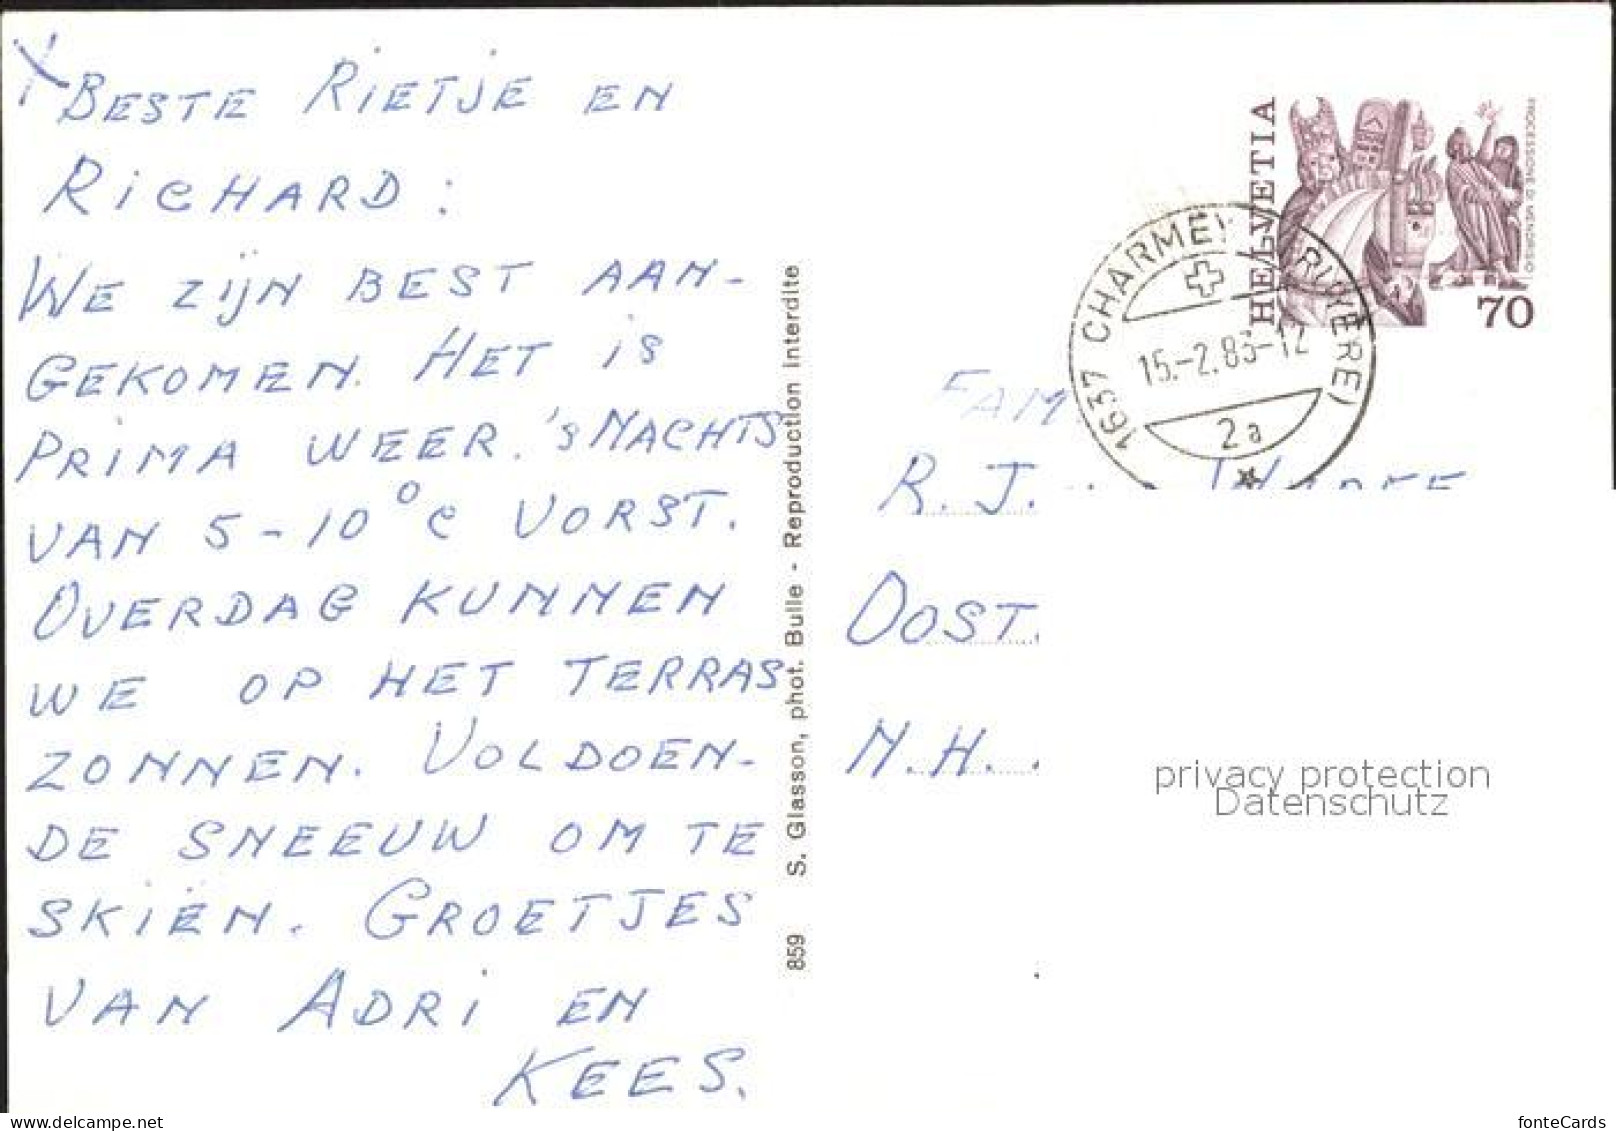 BESTE RIETJE EN
RICHARD:
WE ZIJN BEST AAN-
GEKOMEN. HET IS
PRIMA WEER. 'S NACHTS
VAN 5-10°C VORST.
OVERDAG KUNNEN
WE OP HET TERRAS
ZONNEN. VOLDOEN-
DE SNEEUW OM TE
SKIËN. GROETJES
VAN ADRI EN
KEES.
859 S. Glasson, phot. Bulle - Reproduction interdite
HELVETIA
PROCESSIONE DI MENDRISIO
70
1637 CHARMEY (GRUYÈRE)
15.-2.83-12
2a
FAM
R. J.
OOST.
N.H.
privacy protection
Datenschutz
https://www.ansichtskarten-center.de
fonteCards